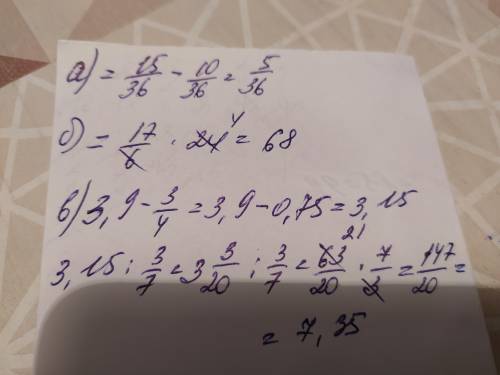 а) = 15/36 - 10/36 = 5/36
б) = 17/6 · 24 4 = 68
в) 3,9 - 3/4 = 3,9 - 0,75 = 3,15
3,15 : 3/7 = 3 3/20 : 3/7 = 63 21/20 · 7/3 = 147/20 =
= 7,35